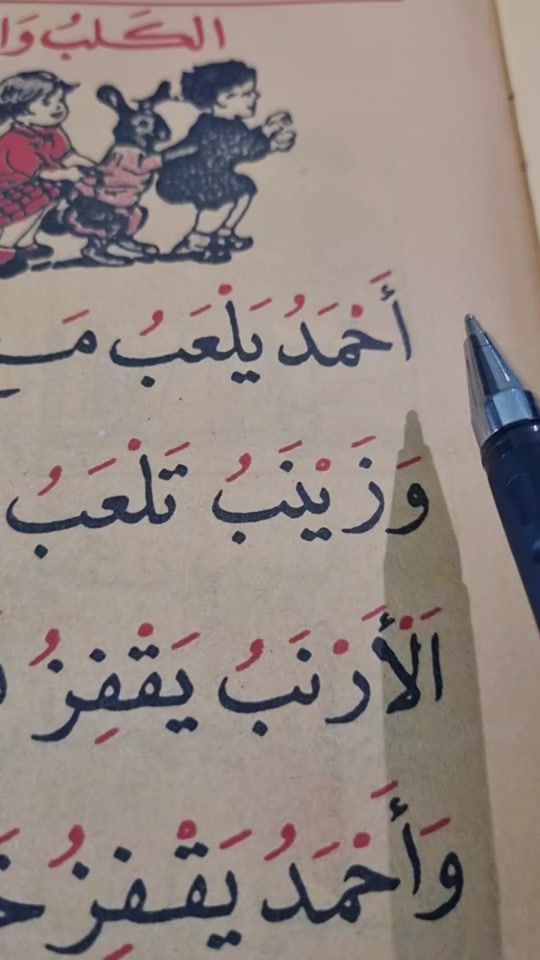 الكَلبُ
أَحْمَدُ يَلْعَبُ
وَزَيْنَبُ تَلْعَبُ
اَلْأَرْنَبُ يَقْفِزُ
وَأَحْمَدُ يَقْفِزُ